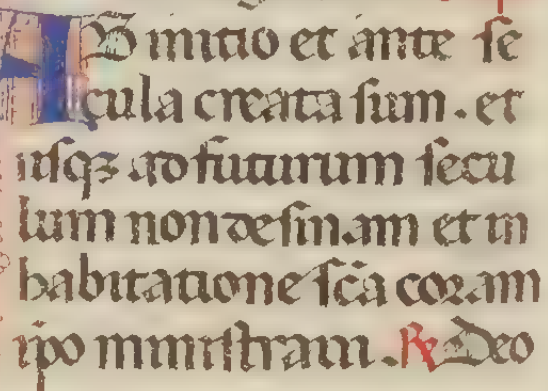 AB initio et ante se
cula creata sum . et
usqz ad futurum secu
lum non desinam et in
habitatione sca coram
ipo ministraui . R Deo